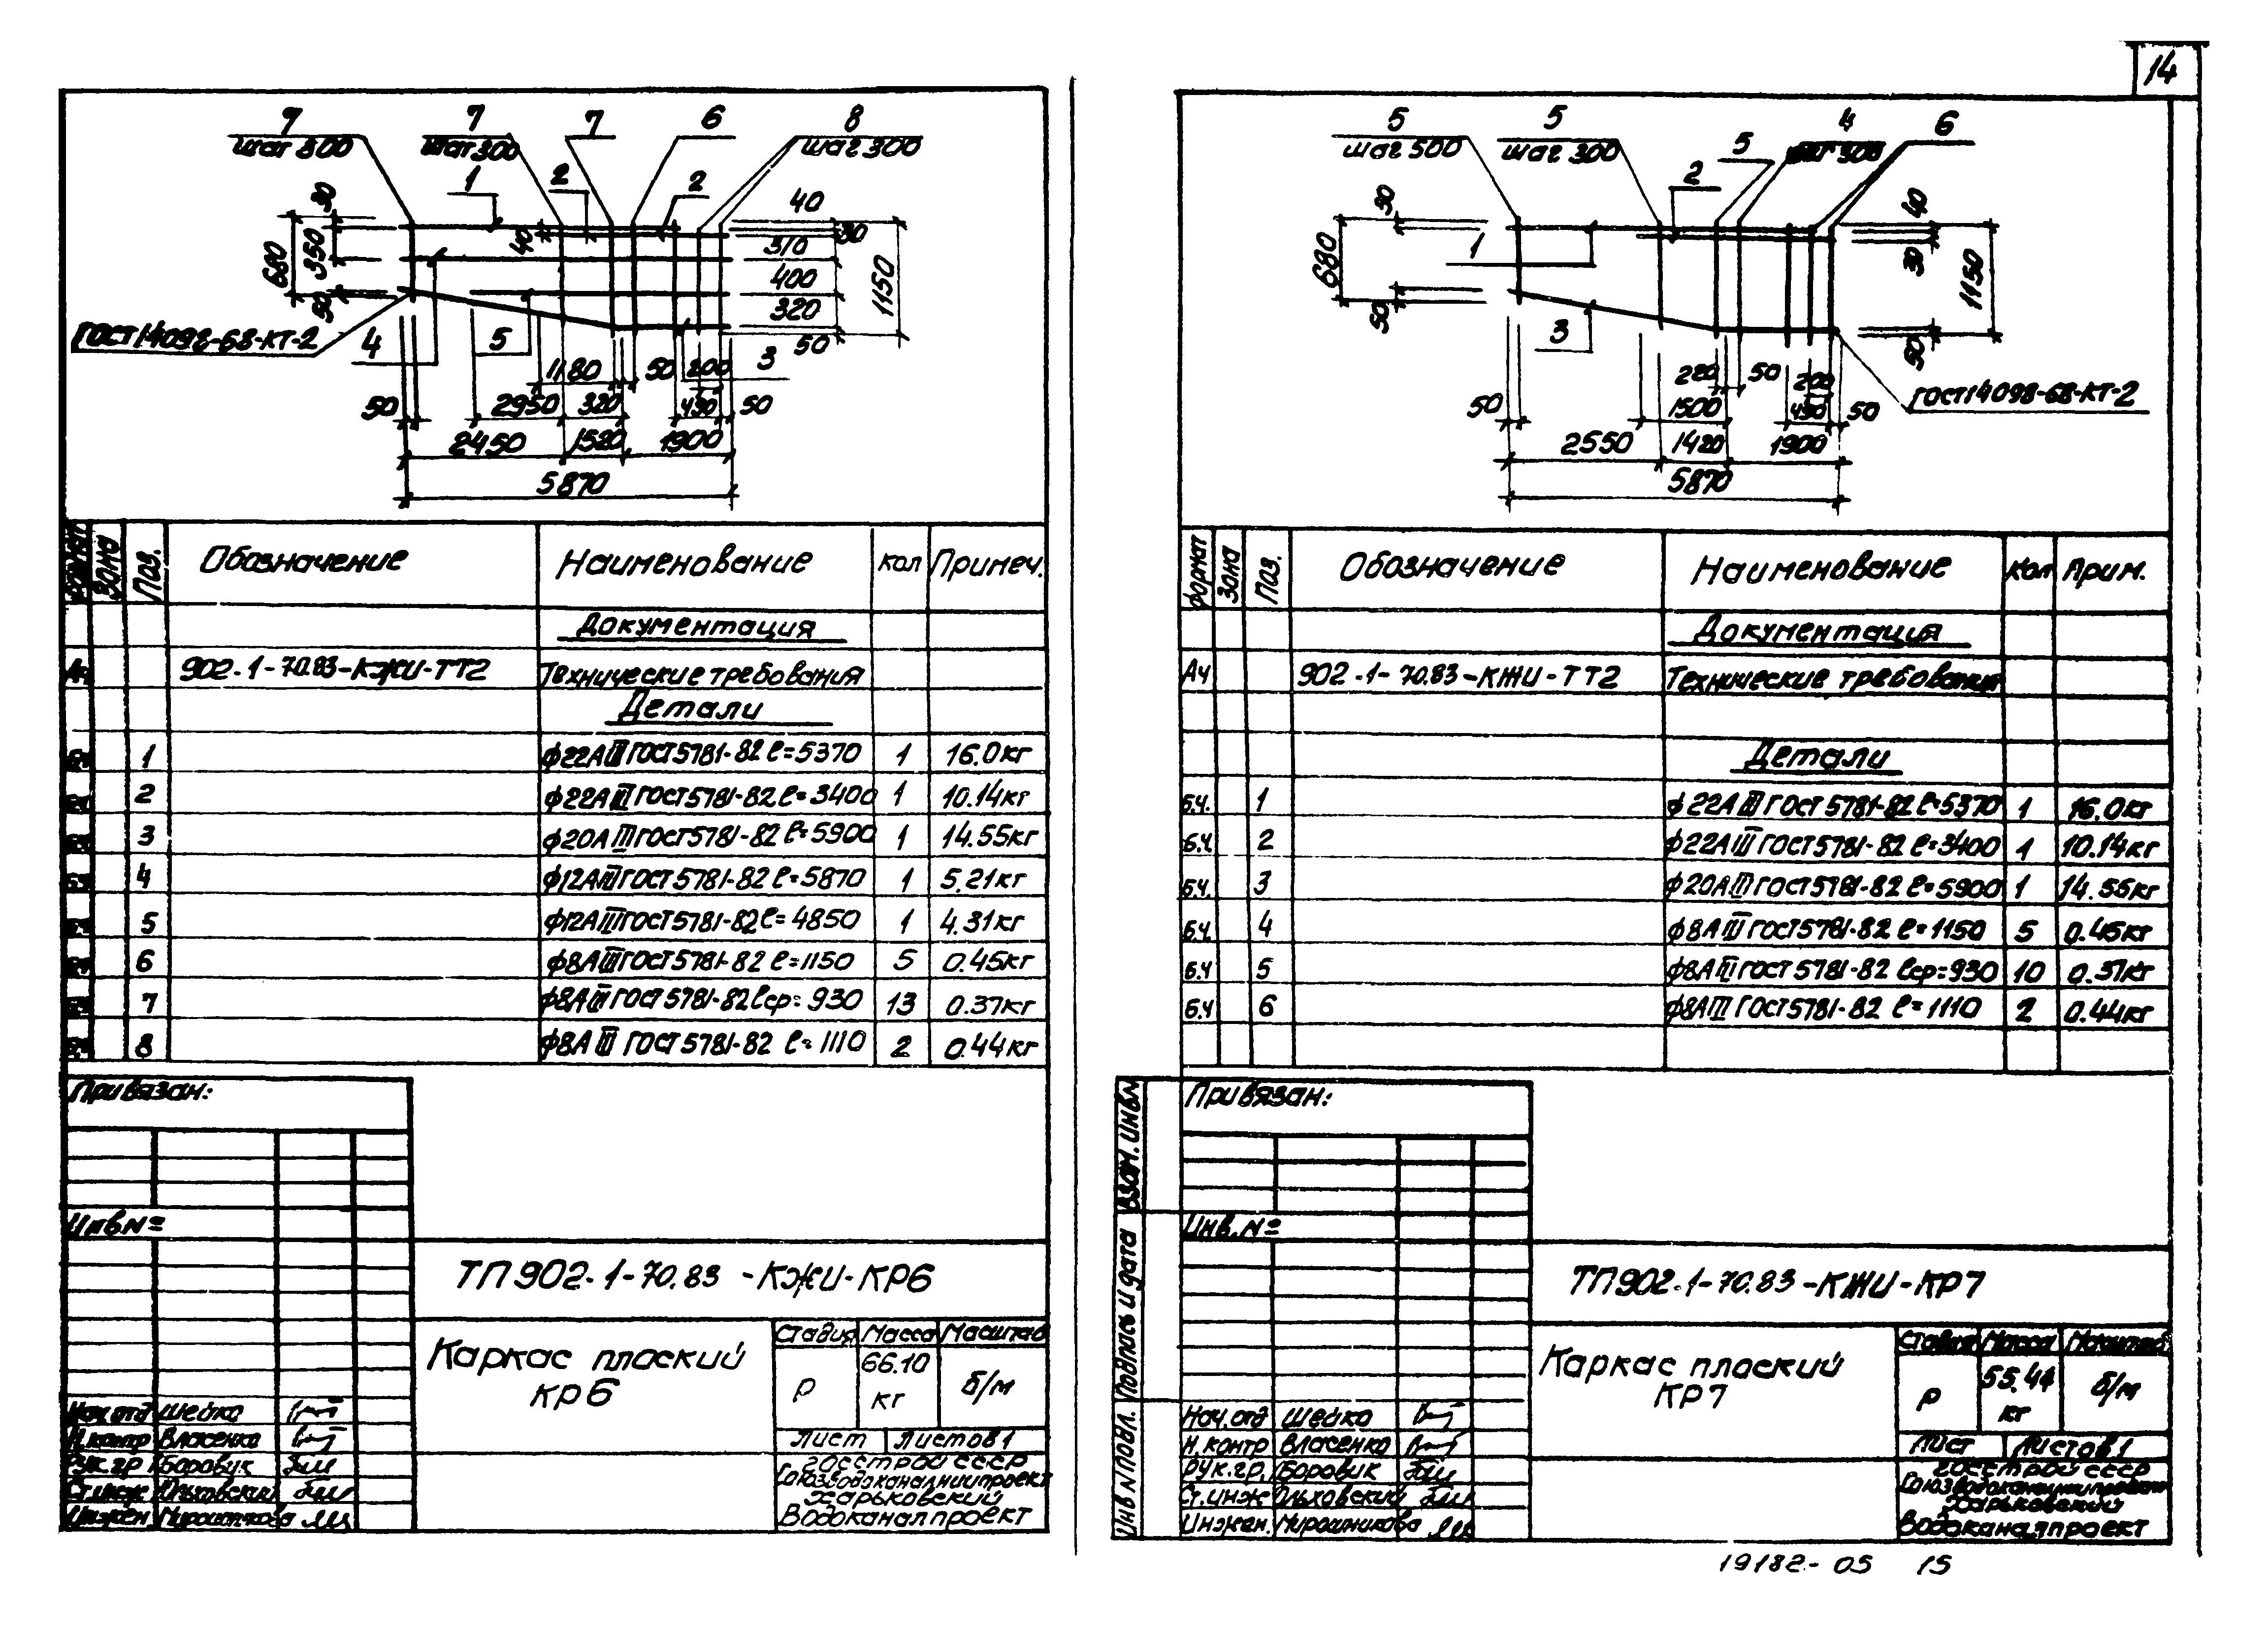 14
7 7 7 6 8
шаг 300 шаг 300
1 2 2
30 350 680 50
40
40
30
310
400
320
50
1150
ГОСТ 14098-68-КТ-2
4 5 3
1180 50 200
50 2950 320 450 50
2450 1520 1900
5870
Зона Поз. Обозначение Наименование кол Примеч.
Документация
А4 902.1-70.83-КЖИ-ТТ2 Технические требования
Детали
1 ф22АIII ГОСТ5781-82 ℓ=5370 1 16.0кг
2 ф22АIII ГОСТ5781-82 ℓ=3400 1 10.14кг
3 ф20АIII ГОСТ5781-82 ℓ=5900 1 14.55кг
4 ф12АIII ГОСТ5781-82 ℓ=5870 1 5.21кг
5 ф12АIII ГОСТ5781-82 ℓ=4850 1 4.31кг
6 ф8АIII ГОСТ5781-82 ℓ=1150 5 0.45кг
7 ф8АIII ГОСТ5781-82 ℓср=930 13 0.37кг
8 ф8АIII ГОСТ 5781-82 ℓ=1110 2 0.44кг
Привязан:
Инв№
ТП902.1-70.83-КЖИ-КР6
Каркас плоский
КР6
Стадия Масса Масштаб
Р 66.10 кг б/м
Лист Листов 1
Госстрой СССР
Союзводоканалниипроект
Харьковский
Водоканалпроект
Нач.отд Шейко
Н.контр Власенко
Рук.гр Боровик
Ст.инж Ольховский
Инжен. Мирошникова
5 5 5 4 6
шаг 500 шаг 300 шаг 300
2
30 680 50
1
3
40
30
1150
50
220 50 200
50 1500 450 50
2550 1420 1900
5870
ГОСТ14098-68-КТ-2
Формат Зона Поз. Обозначение Наименование Кол Прим.
Документация
А4 902.1-70.83-КЖИ-ТТ2 Технические требования
Детали
б.ч. 1 ф22АIII ГОСТ5781-82 ℓ=5370 1 16.0кг
б.ч. 2 ф22АIII ГОСТ5781-82 ℓ=3400 1 10.14кг
б.ч. 3 ф20АIII ГОСТ5781-82 ℓ=5900 1 14.55кг
б.ч. 4 ф8АIII ГОСТ5781-82 ℓ=1150 5 0.45кг
б.ч 5 ф8АIII ГОСТ5781-82 ℓср=930 10 0.37кг
б.ч 6 ф8АIII ГОСТ5781-82 ℓ=1110 2 0.44кг
Привязан:
Инв.№
ТП902.1-70.83-КЖИ-КР7
Каркас плоский
КР7
Стадия Масса Масштаб
Р 55.44 кг б/м
Лист Листов 1
Госстрой СССР
Союзводоканалниипроект
Харьковский
Водоканалпроект
Нач.отд Шейко
Н.контр Власенко
Рук.гр. Боровик
Ст.инж Ольховский
Инжен. Мирошникова
Взам. инв№
Подпись и дата
Инв № подл.
19182-05 15